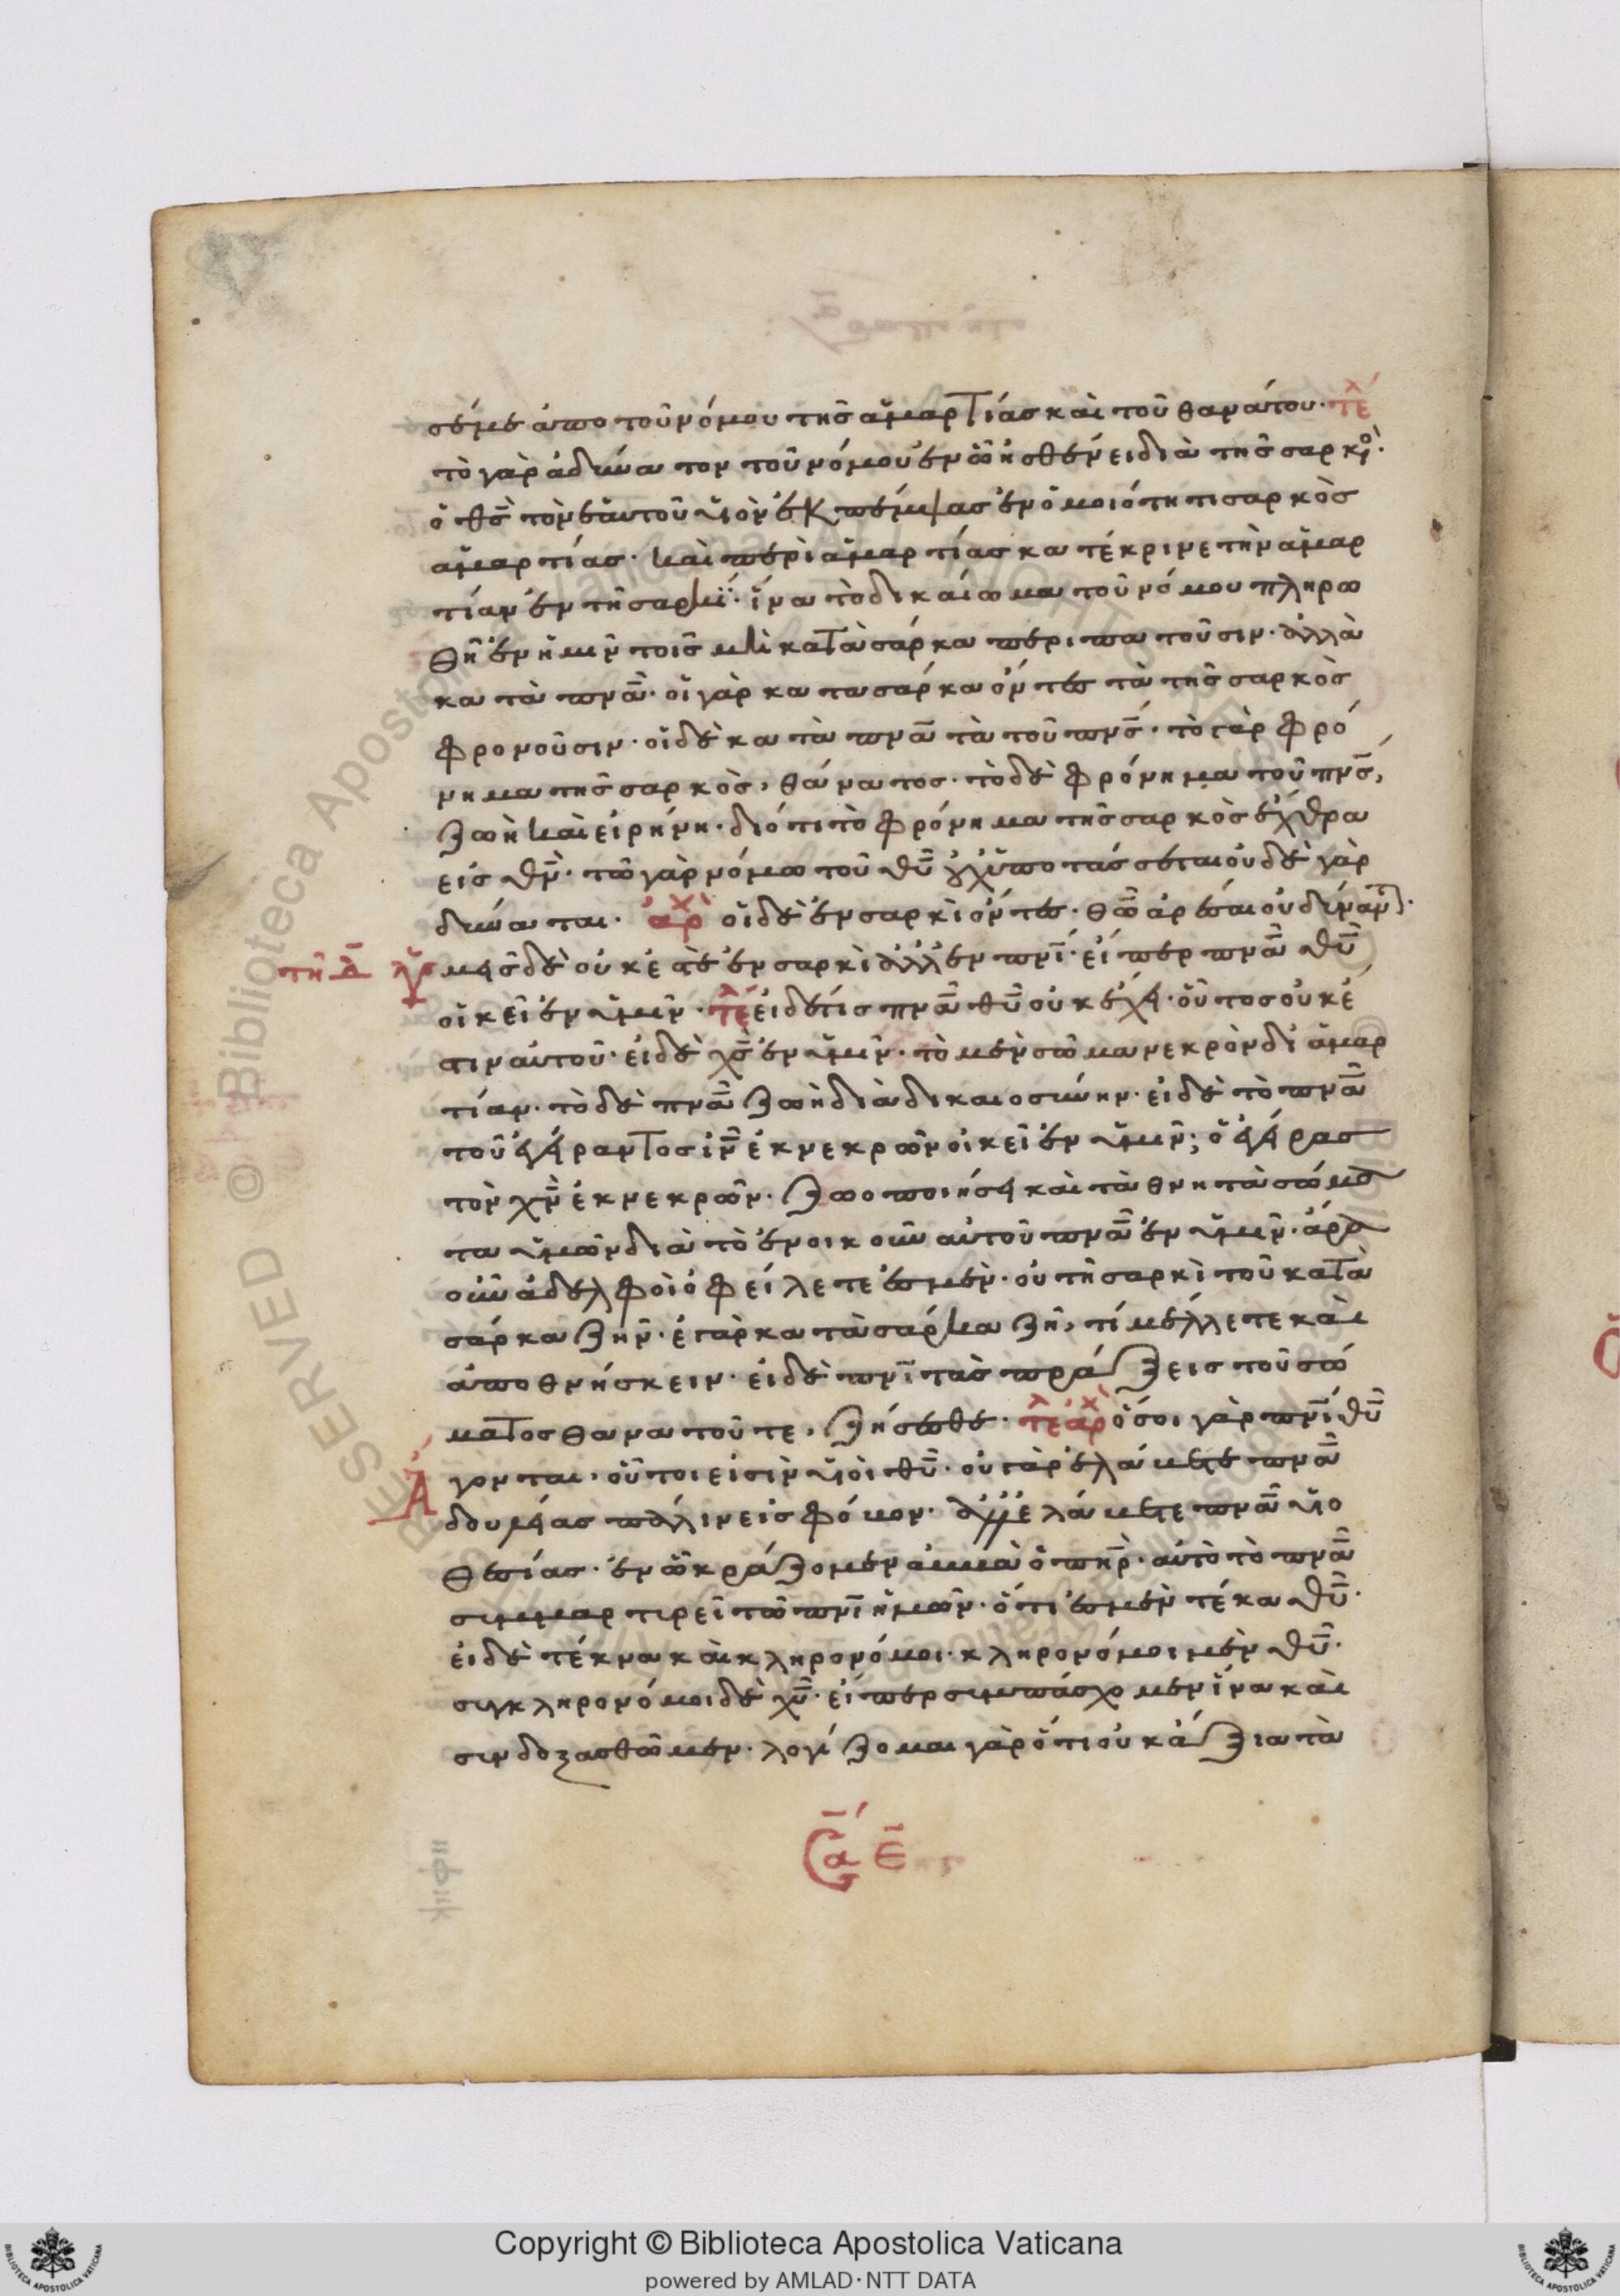 σέ με ἀπο τοῦ νόμου τῆς ἁμαρτίας καὶ τοῦ θανάτου· τέλ
τὸ γὰρ ἀδύνατον τοῦ νόμου ἐν ᾧ ἠσθένει διὰ τῆς σαρκό·
ὁ θς τὸν ἑαυτοῦ υἱὸν ἐκπέμψας ἐν ὁμοιότητι σαρκὸς
ἁμαρτίας· καὶ περὶ ἁμαρτίας κατέκρινε τὴν ἁμαρ
τίαν ἐν τῇ σαρκί· ἵνα τὸ δικαίωμα τοῦ νόμου πληρω
θῇ ἐν ἡμῖν τοῖς μὴ κατὰ σάρκα περιπατοῦσιν· ἀλλὰ
κατὰ πνα· οἱ γὰρ κατα σάρκα ὄντες τὰ τῆς σαρκὸς
φρονοῦσιν· οἱ δὲ κατὰ πνα τὰ τοῦ πνς· τὸ γὰρ φρό
νημα τῆς σαρκὸς, θάνατος· τὸ δὲ φρόνημα τοῦ πνς,
ζωὴ καὶ εἰρήνη· διότι τὸ φρόνημα τῆς σαρκὸς ἔχθρα
εἰς θν· τῷ γὰρ νόμω τοῦ θυ οὐχ ὑποτάσσεται οὐδὲ γὰρ
δύναται· ἀρχ οἱ δὲ ἐν σαρκὶ ὄντες· θῶ ἀρέσαι οὐ δύναν·
τῇ δ Ὑμεῖς δὲ οὐκ ἐστὲ ἐν σαρκὶ ἀλλ ἐν πνι· εἴπερ πνα θυ
οἰκεῖ ἐν ὑμῖν· τέλ εἰ δέ τις πνα θυ οὐκ ἔχει· οὗτος οὐκ έ
στιν αὐτοῦ· εἰ δὲ χς ἐν ὑμῖν· τὸ μὲν σῶμα νεκρὸν δι ἁμαρ
τίαν· τὸ δὲ πνα ζωὴ διὰ δικαιοσύνην· εἰ δὲ τὸ πνα
τοῦ ἐγείραντος ιν ἐκ νεκρῶν οἰκεῖ ἐν ὑμῖν; ὁ ἐγείρας
τὸν χν ἐκ νεκρῶν· ζωοποιήσει καὶ τὰ θνητὰ σώμα
τα ὑμῶν διὰ τὸ ἐνοικοῦν αὐτοῦ πνα ἐν ὑμῖν· ἄρα
οὖν ἀδελφοὶ ὀφειλέτε ἐσμὲν· οὐ τῇ σαρκὶ τοῦ κατὰ
σάρκα ζῆν· ἐ γὰρ κατὰ σάρκα ζῆ, τί μέλλετε καὶ
ἀποθνήσκειν· εἰ δὲ πνι τὰς πράξεις τοῦ σώ
ματος θανατοῦτε, ζήσεσθε· τέλ ἀρχ ὅσοι γὰρ πνι θυ
Ἄγονται, οὗτοι εἰσὶν υἱοὶ θυ· οὐ γὰρ ἐλάβετε πνα
δουλείας πάλιν εἰς φόβον· ἀλλ ἐλάβετε πνα υἱο
θεσίας· ἐν ᾧ κράζομεν ἀββὰ ὁ πηρ· αὐτὸ τὸ πνα
συμμαρτιρεῖ τῷ πνι ἡμῶν· ὅτι ἐσμὲν τέκα θυ·
εἰ δὲ τέκνα καὶ κληρονόμοι· κληρονόμοι μὲν θυ·
συγκληρονόμοι δὲ χυ· εἴπερ συμπάσχομεν ἵνα καὶ
συνδοξασθῶμεν· λογίζομαι γὰρ ὅτι οὐκ ἄξια τὰ